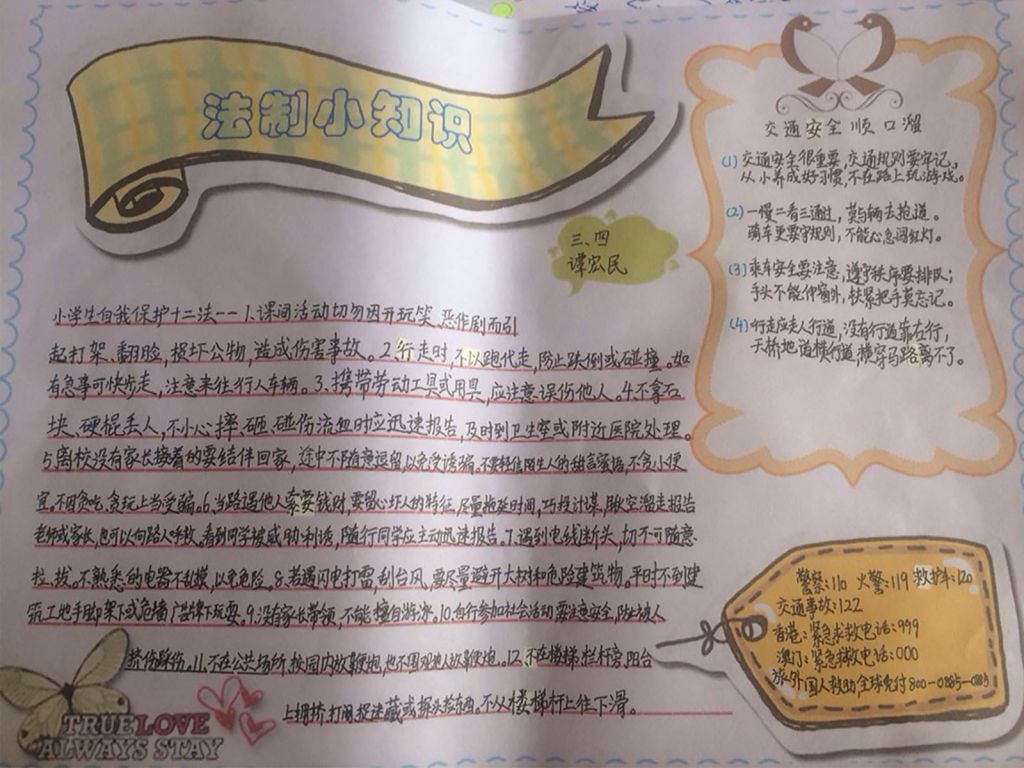 法制小知识
三、四
谭宏民
小学生自我保护十二法——1.课间活动切勿因开玩笑、恶作剧而引
起打架、翻脸,损坏公物,造成伤害事故。2.行走时,不以跑代走,防止跌倒或碰撞。如
有急事可快步走,注意来往行人车辆。3.携带劳动工具或用具,应注意误伤他人。4.不拿石
块、硬棍丢人,不小心摔、砸、碰伤流血时应迅速报告,及时到卫生室或附近医院处理。
5.离校没有家长接着的要结伴回家,途中不随意逗留,以免受诱骗。不要轻信陌生人的甜言蜜语,不贪小便
宜。不因贪吃、贪玩上当受骗。6.当路遇他人索要钱财,要留心坏人的特征,尽量拖延时间,巧投计谋,瞅空溜走报告
老师或家长,也可以向路人呼救。看到同学被威胁利诱,随行同学应主动迅速报告。7.遇到电线断头,切不可随意
拉、拔,不熟悉的电器不乱摸,以免危险。8.若遇闪电打雷,刮台风,要尽量避开大树和危险建筑物。平时不到建
筑工地手脚架下或危墙广告牌下玩耍。9.没有家长带领,不能擅自游泳。10.自行参加社会活动要注意安全,防止被人
挤伤踩伤。11.不在公共场所,校园内放鞭炮,也不围观他人放鞭炮。12.不在楼梯、栏杆旁、阳台
上拥挤、打闹、捉迷藏或探头丢东西。不从楼梯杆上往下滑。
TRUE LOVE
ALWAYS STAY
交通安全顺口溜
(1)交通安全很重要,交通规则要牢记。
从小养成好习惯,不在路上玩游戏。
(2)一慢二看三通过,莫与辆去抢道。
骑车更要守规则,不能心急闯红灯。
(3)乘车安全要注意,遵守秩序要排队;
手头不能伸窗外,扶紧把手莫忘记。
(4)行走应走人行道,没有行道靠右行,
天桥地道横行道,横穿马路离不了。
警察:110 火警:119 救护车:120
交通事故:122
香港:紧急求救电话:999
澳门:紧急救电话:000
旅外国人救助全球免付800-0885-0885